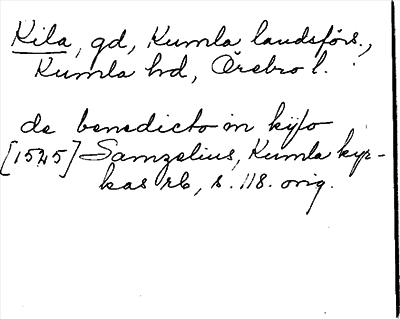 Kila, gd, Kumla landsförs.,
Kumla hd, Örebro l.
de benedicto in kijlo
[1525] Samzelius, Kumla kyr-
kas rb, s. 118. orig.